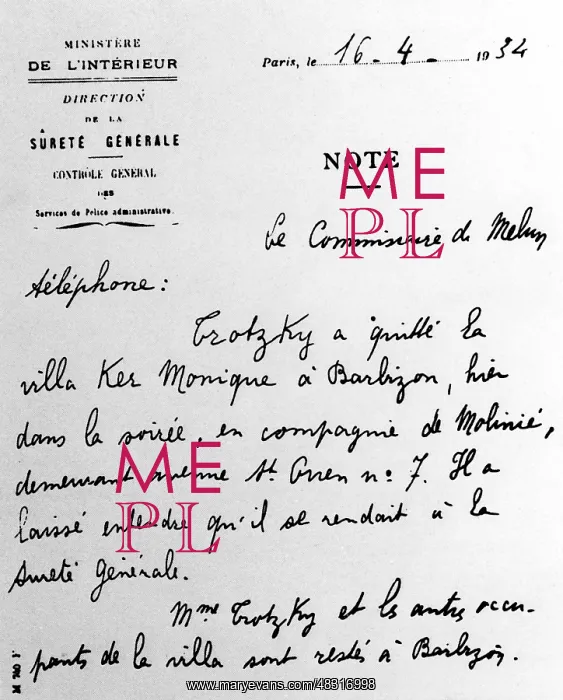 MINISTÈRE
DE L'INTÉRIEUR
DIRECTION
DE LA
SÛRETÉ GÉNÉRALE
CONTRÔLE GÉNÉRAL
DES
Services de Police administrative.
Paris, le 16 - 4 - 1934
NOTE
Le Commissaire de Melun
téléphone :
Trotzky a quitté la
villa Ker Monique à Barbizon, hier
dans la soirée, en compagnie de Molinié,
demeurant avenue St Ouen n° 7. Il a
laissé entendre qu'il se rendait à la
Sureté Générale.
Mme Trotzky et les autres occu-
pants de la villa sont restés à Barbizon.
ME
PL
ME
PL
www.maryevans.com/48316998